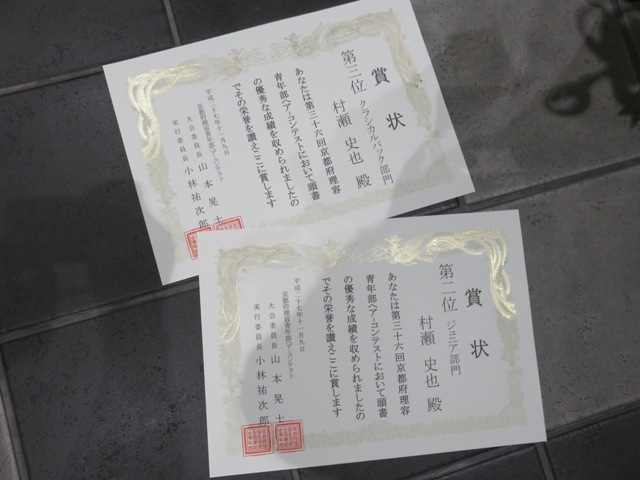 賞状
第三位 クラシカルバック部門
村瀬 史也 殿
あなたは第三十六回京都府理容
青年部ヘアーコンテストにおいて頭書
の優秀な成績を収められましたの
でその栄誉を讃えここに賞します
平成二十七年十一月九日
京都府理容青年部ヘアーコンテスト
大会委員長 山本晃士
実行委員長 小林祐次郎
賞状
第二位 ジュニア部門
村瀬 史也 殿
あなたは第三十六回京都府理容
青年部ヘアーコンテストにおいて頭書
の優秀な成績を収められましたの
でその栄誉を讃えここに賞します
平成二十七年十一月九日
京都府理容青年部ヘアーコンテスト
大会委員長 山本晃士
実行委員長 小林祐次郎